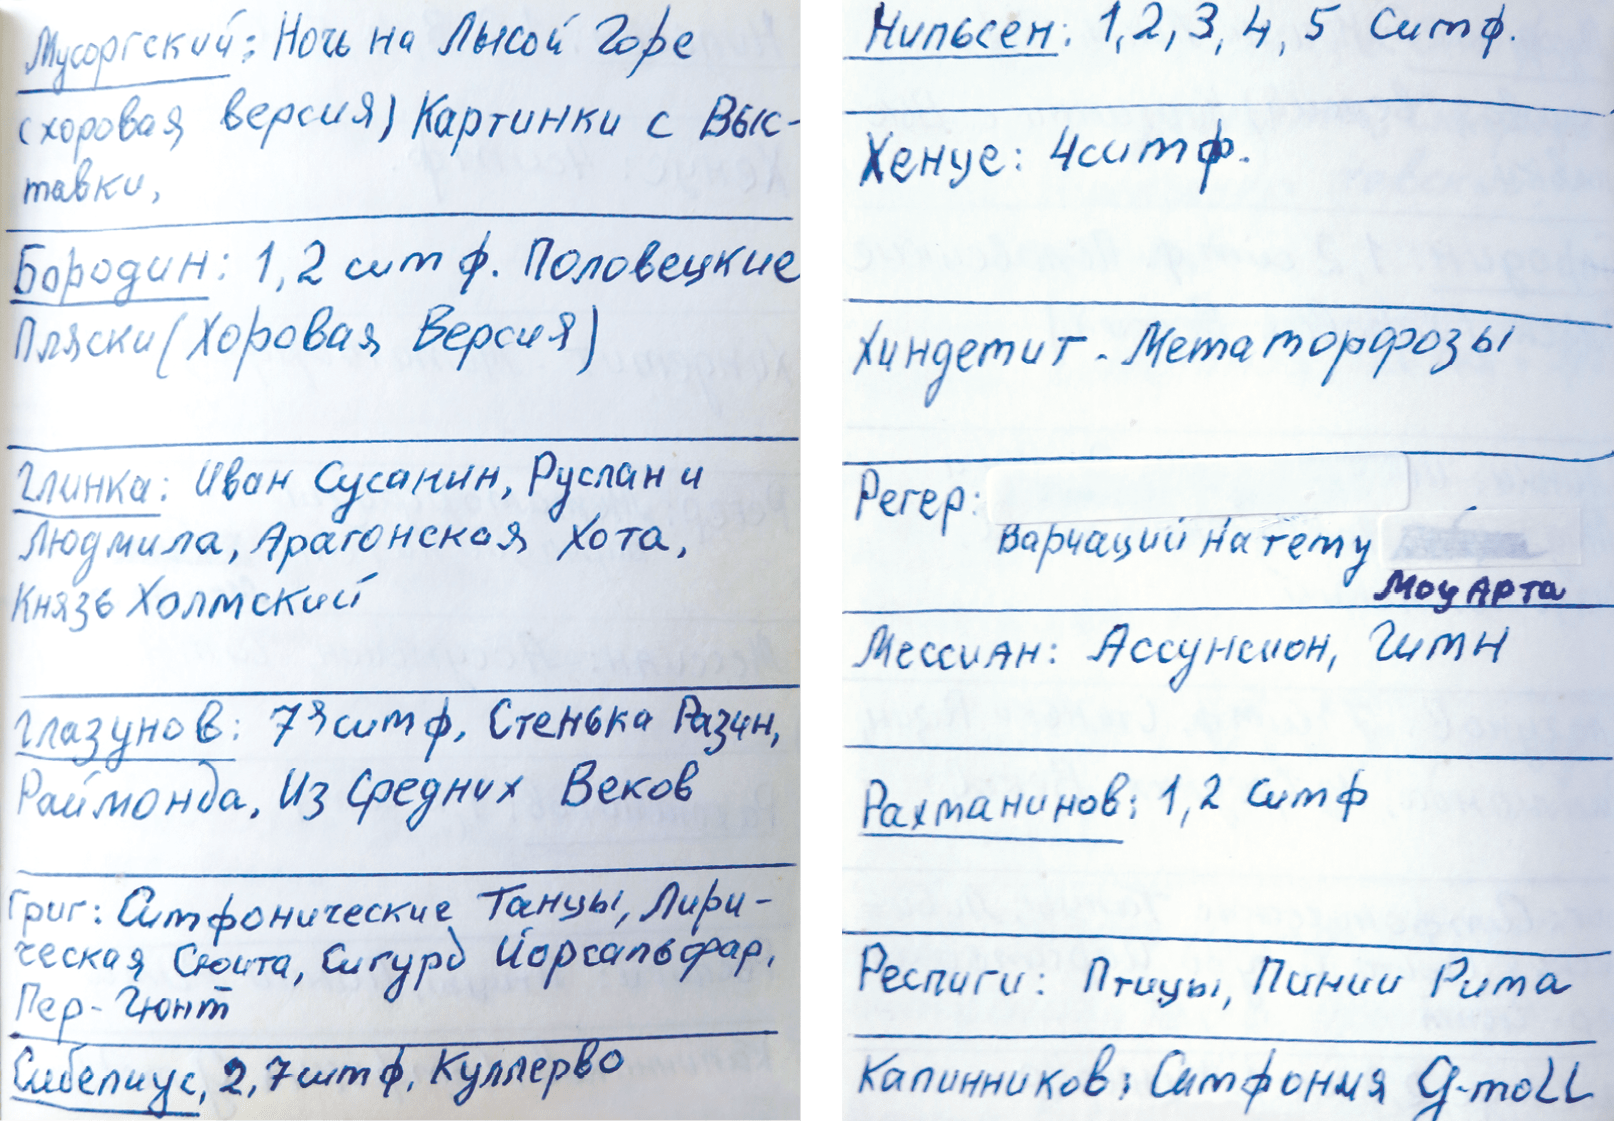 Мусоргский: Ночь на Лысой Горе
(хоровая версия) Картинки с Выс-
тавки,
Бородин: 1,2 симф. Половецкие
Пляски (Хоровая Версия)
Глинка: Иван Сусанин, Руслан и
Людмила, Арагонская Хота,
Князь Холмский
Глазунов: 7я симф, Стенька Разин,
Раймонда, Из Средних Веков
Григ: Симфонические Танцы, Лири-
ческая Сюита, Сигурд Йорсальфар,
Пер-Гюнт
Сибелиус, 2,7 симф, Куллерво
Нильсен: 1,2,3,4,5 Симф.
Хенце: 4 симф.
Хиндемит - Метаморфозы
Регер:
Варчаций на тему
Моцарта
Мессиан: Ассунсион, Гимн
Рахманинов: 1,2 Симф
Респиги: Птицы, Пинии Рима
Калинников: Симфония G-moll